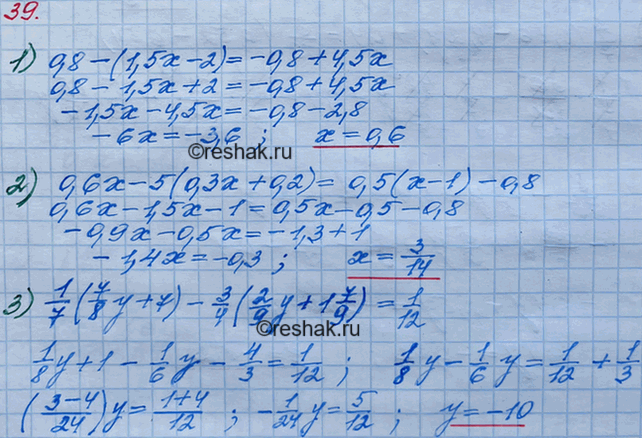 39.
1) 0,8 − (1,5x − 2) = −0,8 + 4,5x
0,8 − 1,5x + 2 = −0,8 + 4,5x
−1,5x − 4,5x = −0,8 − 2,8
−6x = −3,6 ; x = 0,6
©reshak.ru
2) 0,6x − 5(0,3x + 0,2) = 0,5(x − 1) − 0,8
0,6x − 1,5x − 1 = 0,5x − 0,5 − 0,8
−0,9x − 0,5x = −1,3 + 1
−1,4x = −0,3 ; x = 3/14
3) 1/7 (7/8 y + 7) − 3/4 (2/9 y + 1 7/9) = 1/12
©reshak.ru
1/8 y + 1 − 1/6 y − 4/3 = 1/12 ; 1/8 y − 1/6 y = 1/12 + 1/3
((3−4)/24) y = (1+4)/12 ; −1/24 y = 5/12 ; y = −10